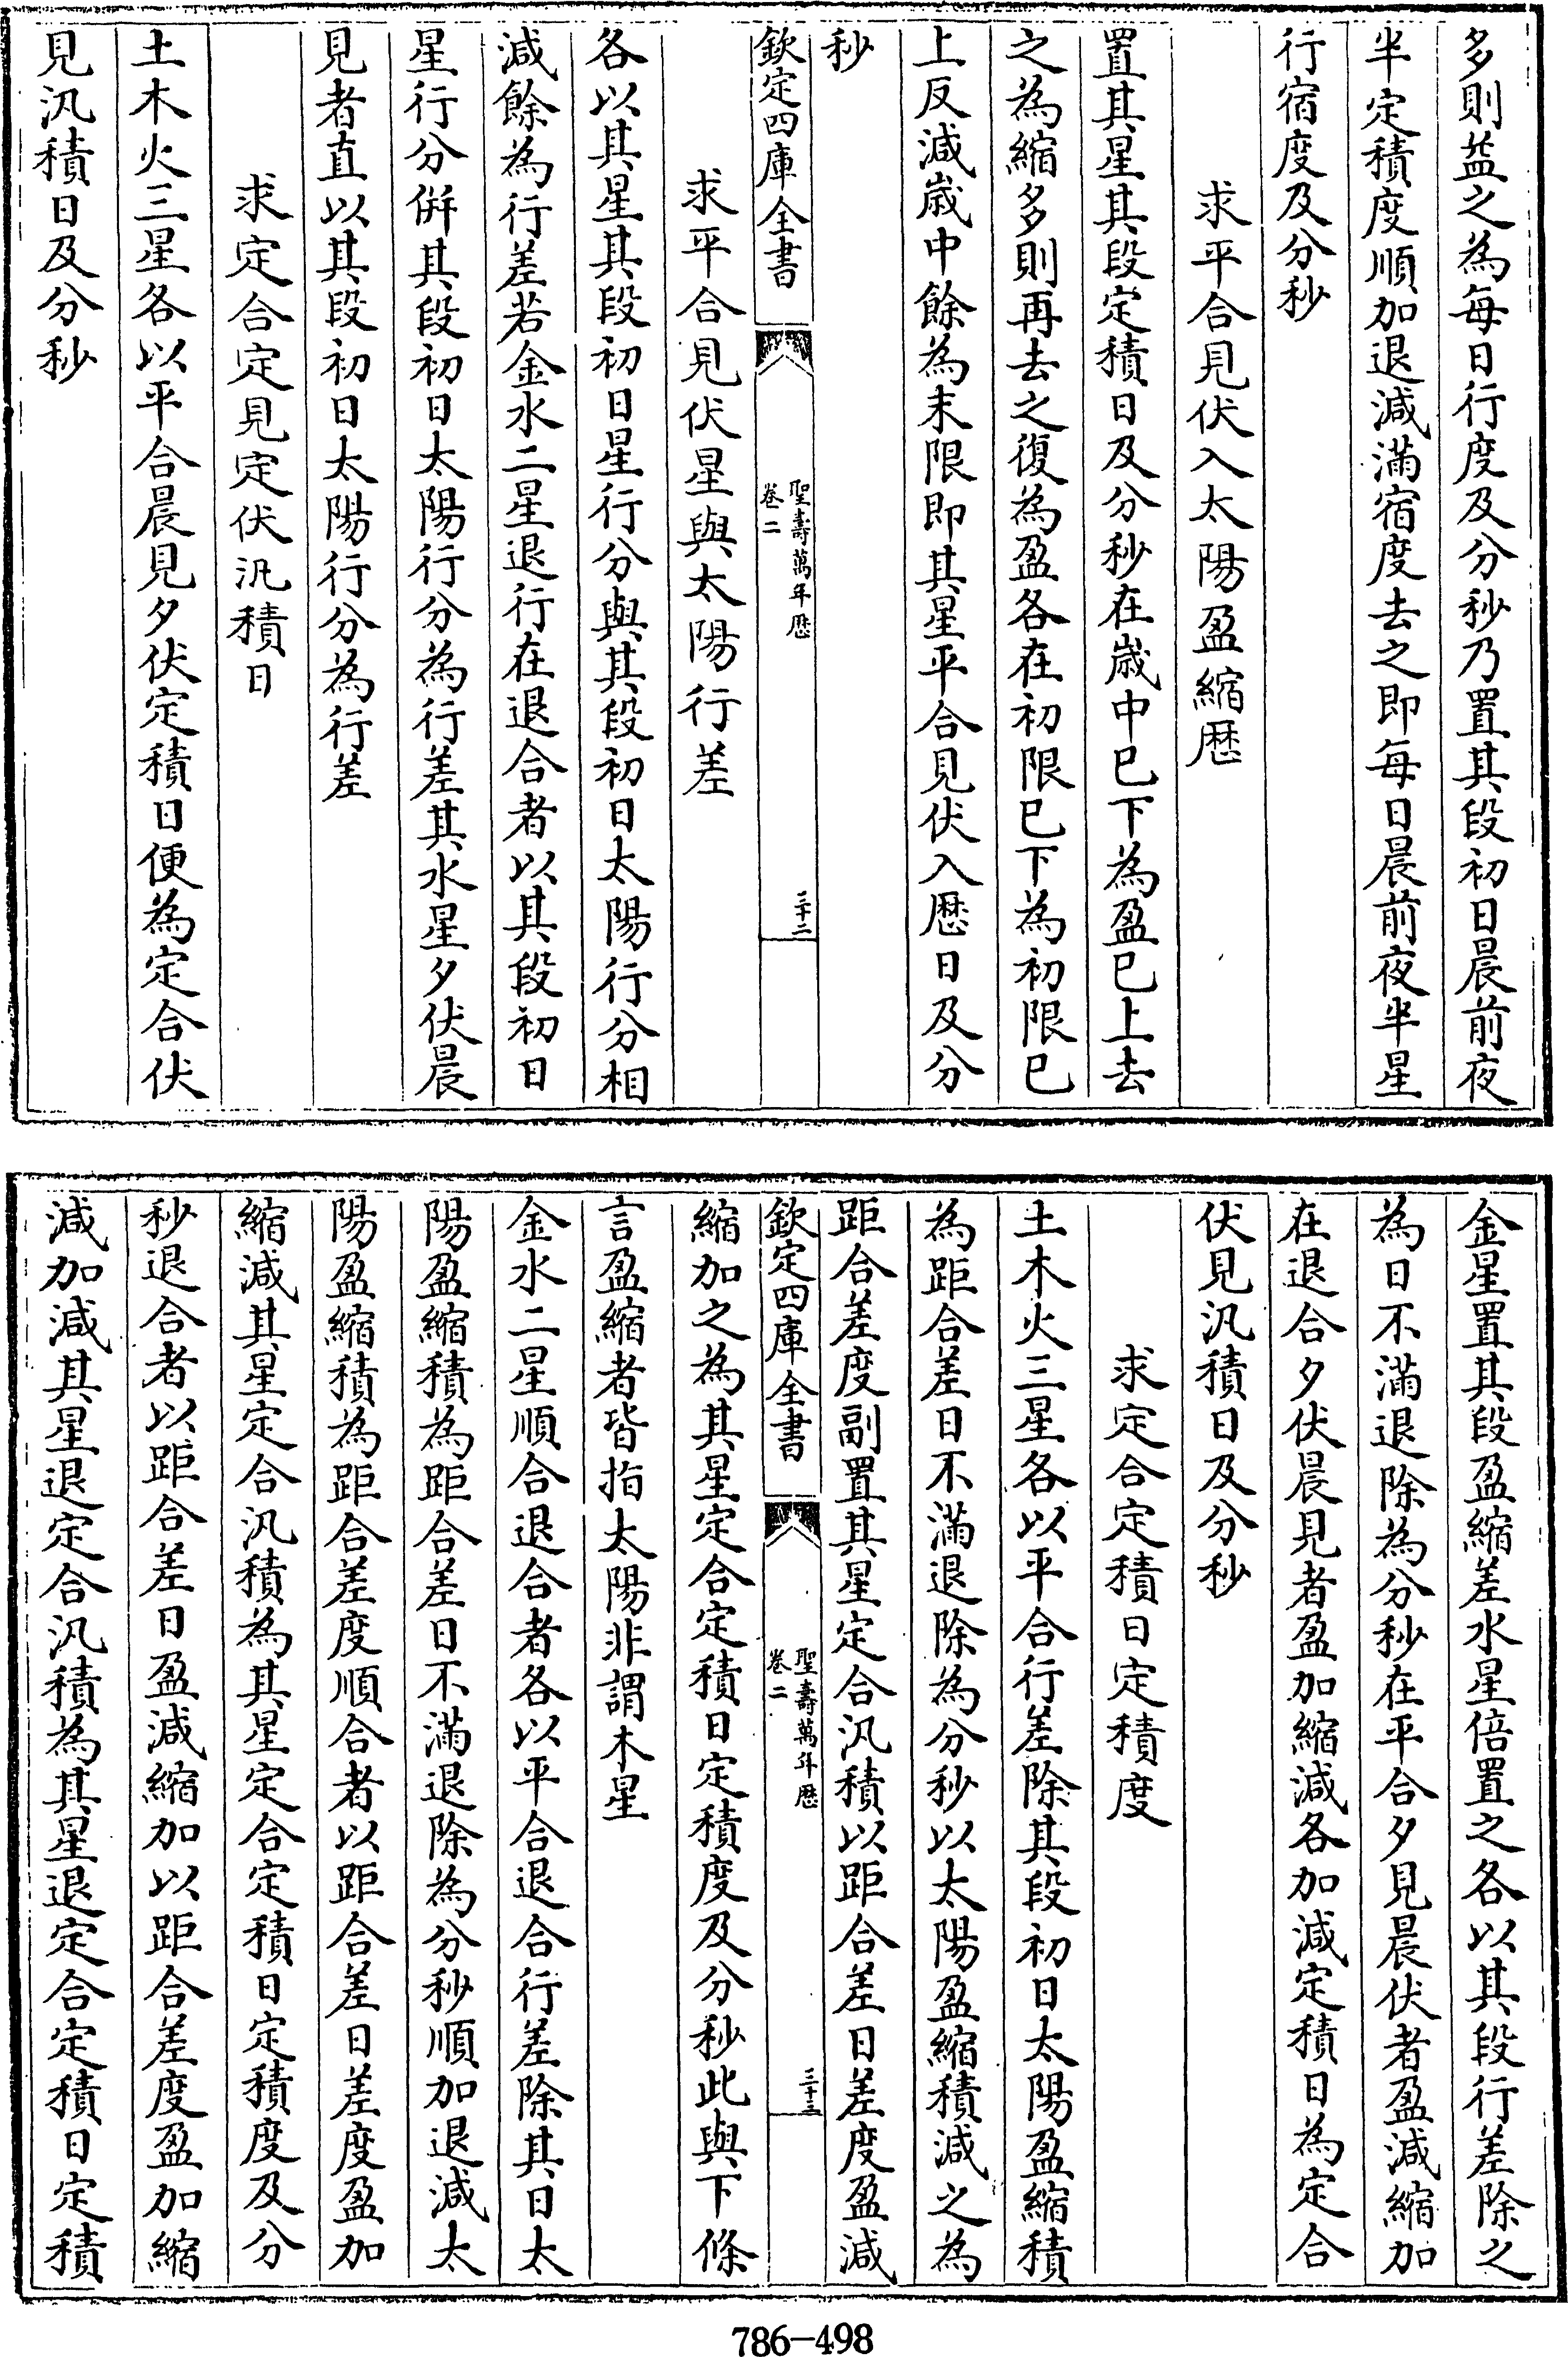 多則益之為每日行度及分秒乃置其段初日晨前夜
半定積度順加退減滿宿度去之即每日晨前夜半星
行宿度及分秒
求平合見伏入太陽盈縮厯
置其星其段定積日及分秒在嵗中已下為盈已上去
之為縮多則再去之復為盈各在初限已下為初限已
上反減嵗中餘為末限即其星平合見伏入厯日及分
秒
欽定四庫全書
聖壽萬年厯
卷二
三十二
求平合見伏星與太陽行差
各以其星其段初日星行分與其段初日太陽行分相
減餘為行差若金水二星退行在退合者以其段初日
星行分併其段初日太陽行分為行差其水星夕伏晨
見者直以其段初日太陽行分為行差
求定合定見定伏汎積日
土木火三星各以平合晨見夕伏定積日便為定合伏
見汎積日及分秒
金星置其段盈縮差水星倍置之各以其段行差除之
為日不滿退除為分秒在平合夕見晨伏者盈減縮加
在退合夕伏晨見者盈加縮減各加減定積日為定合
伏見汎積日及分秒
求定合定積日定積度
土木火三星各以平合行差除其段初日太陽盈縮積
為距合差日不滿退除為分秒以太陽盈縮積減之為
距合差度副置其星定合汎積以距合差日差度盈減
欽定四庫全書
聖壽萬年厯
卷二
三十三
縮加之為其星定合定積日定積度及分秒此與下條
言盈縮者皆指太陽非謂木星
金水二星順合退合者各以平合退合行差除其日太
陽盈縮積為距合差日不滿退除為分秒順加退減太
陽盈縮積為距合差度順合者以距合差日差度盈加
縮減其星定合汎積為其星定合定積日定積度及分
秒退合者以距合差日盈減縮加以距合差度盈加縮
減加減其星退定合汎積為其星退定合定積日定積
786-498